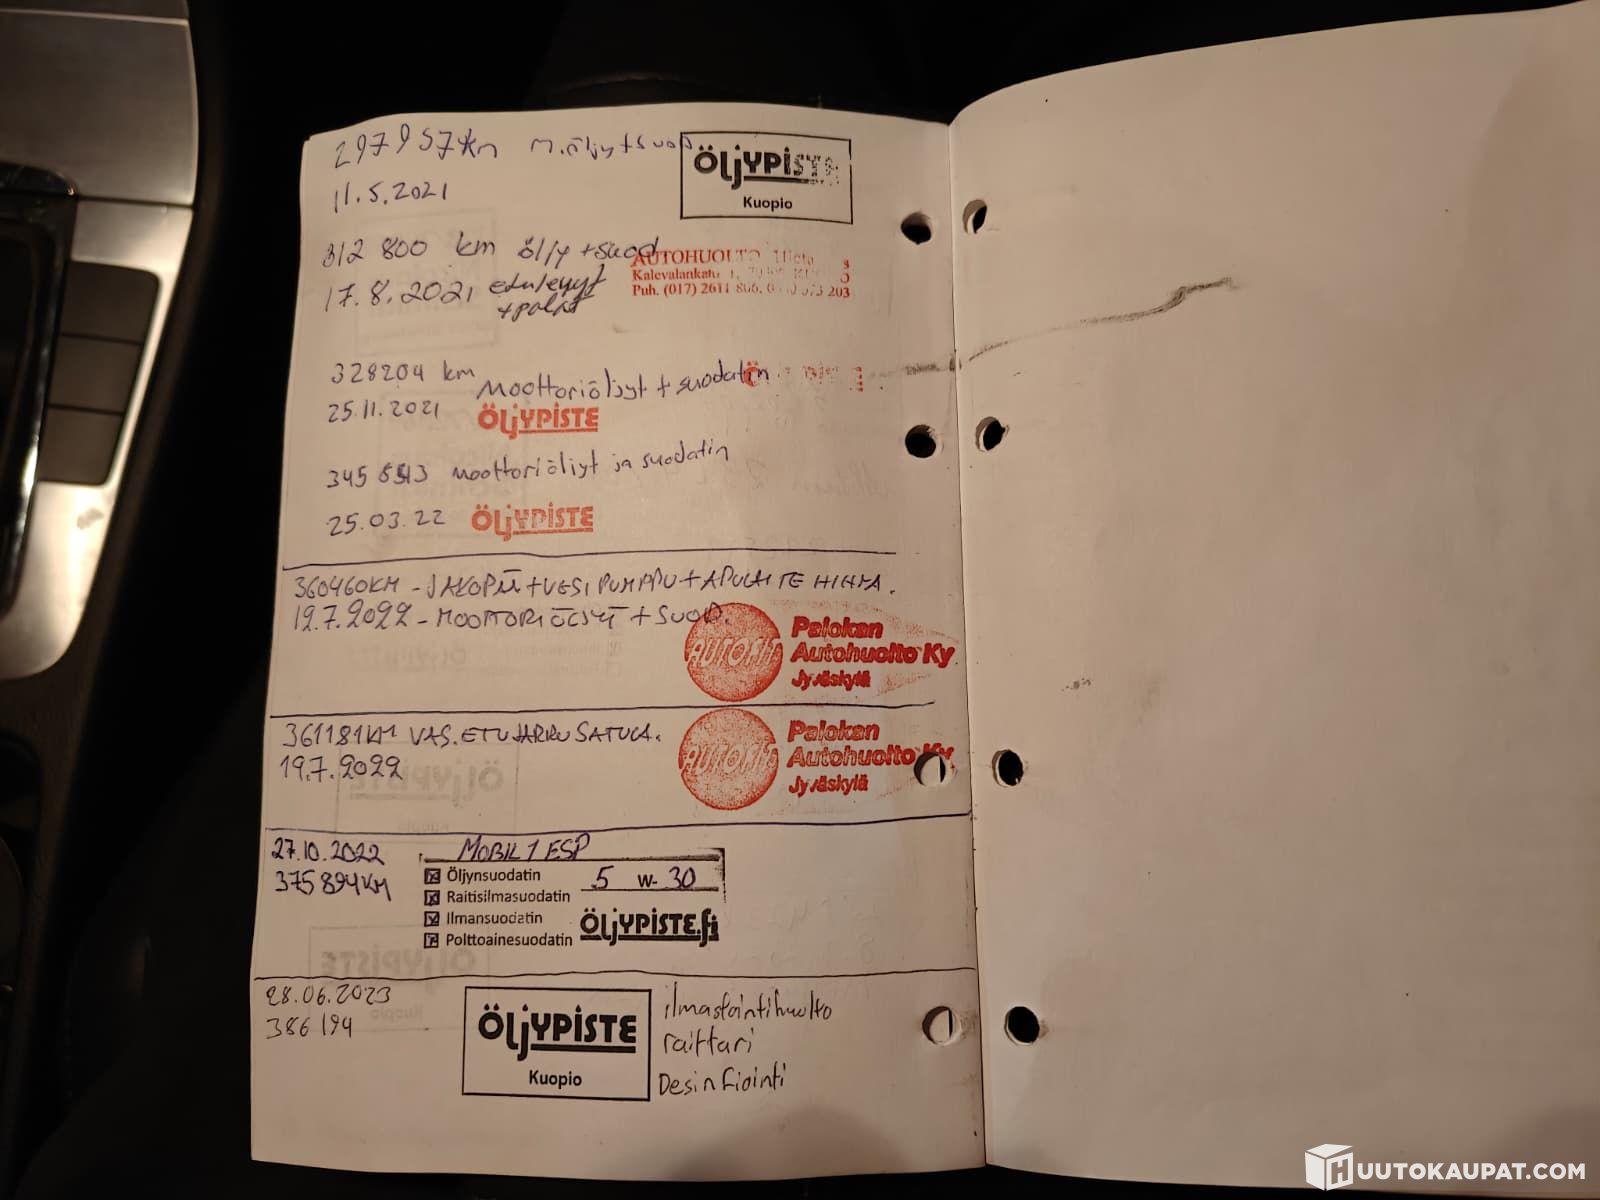 297957km M.öljyt+suod
ÖljYPiSTE
Kuopio
11.5.2021
312 800 km öljy+suod
AUTOHUOLTO
Kalevalankatu 1,
17.8.2021 etulevyt
+palat
Puh. (017) 2611 806, 203
328204 km Moottoriöljyt + suodatin
25.11.2021 ÖljYPiSTE
345 8513 moottoriöljyt ja suodatin
25.03.22 ÖljYPiSTE
360460KM - JAKOPÄÄ+VESIPUMPPU+APULAITE HIHNA.
19.7.2022 - MOOTTORIÖLJYT + SUOD.
AUTOFIT
Palokan
Autohuolto Ky
Jyväskylä
361181KM VAS.ETUJARRUSATULA.
19.7.2022
AUTOFIT
Palokan
Autohuolto Ky
Jyväskylä
27.10.2022 MOBIL 1 ESP
375894KM
Öljynsuodatin 5 W- 30
Raitisilmasuodatin
Ilmansuodatin ÖljYPiSTE.fi
Polttoainesuodatin
28.06.2023
386 194
ÖljYPiSTE
Kuopio
ilmastointihuolto
raittari
Desinfiointi
HUUTOKAUPAT.COM